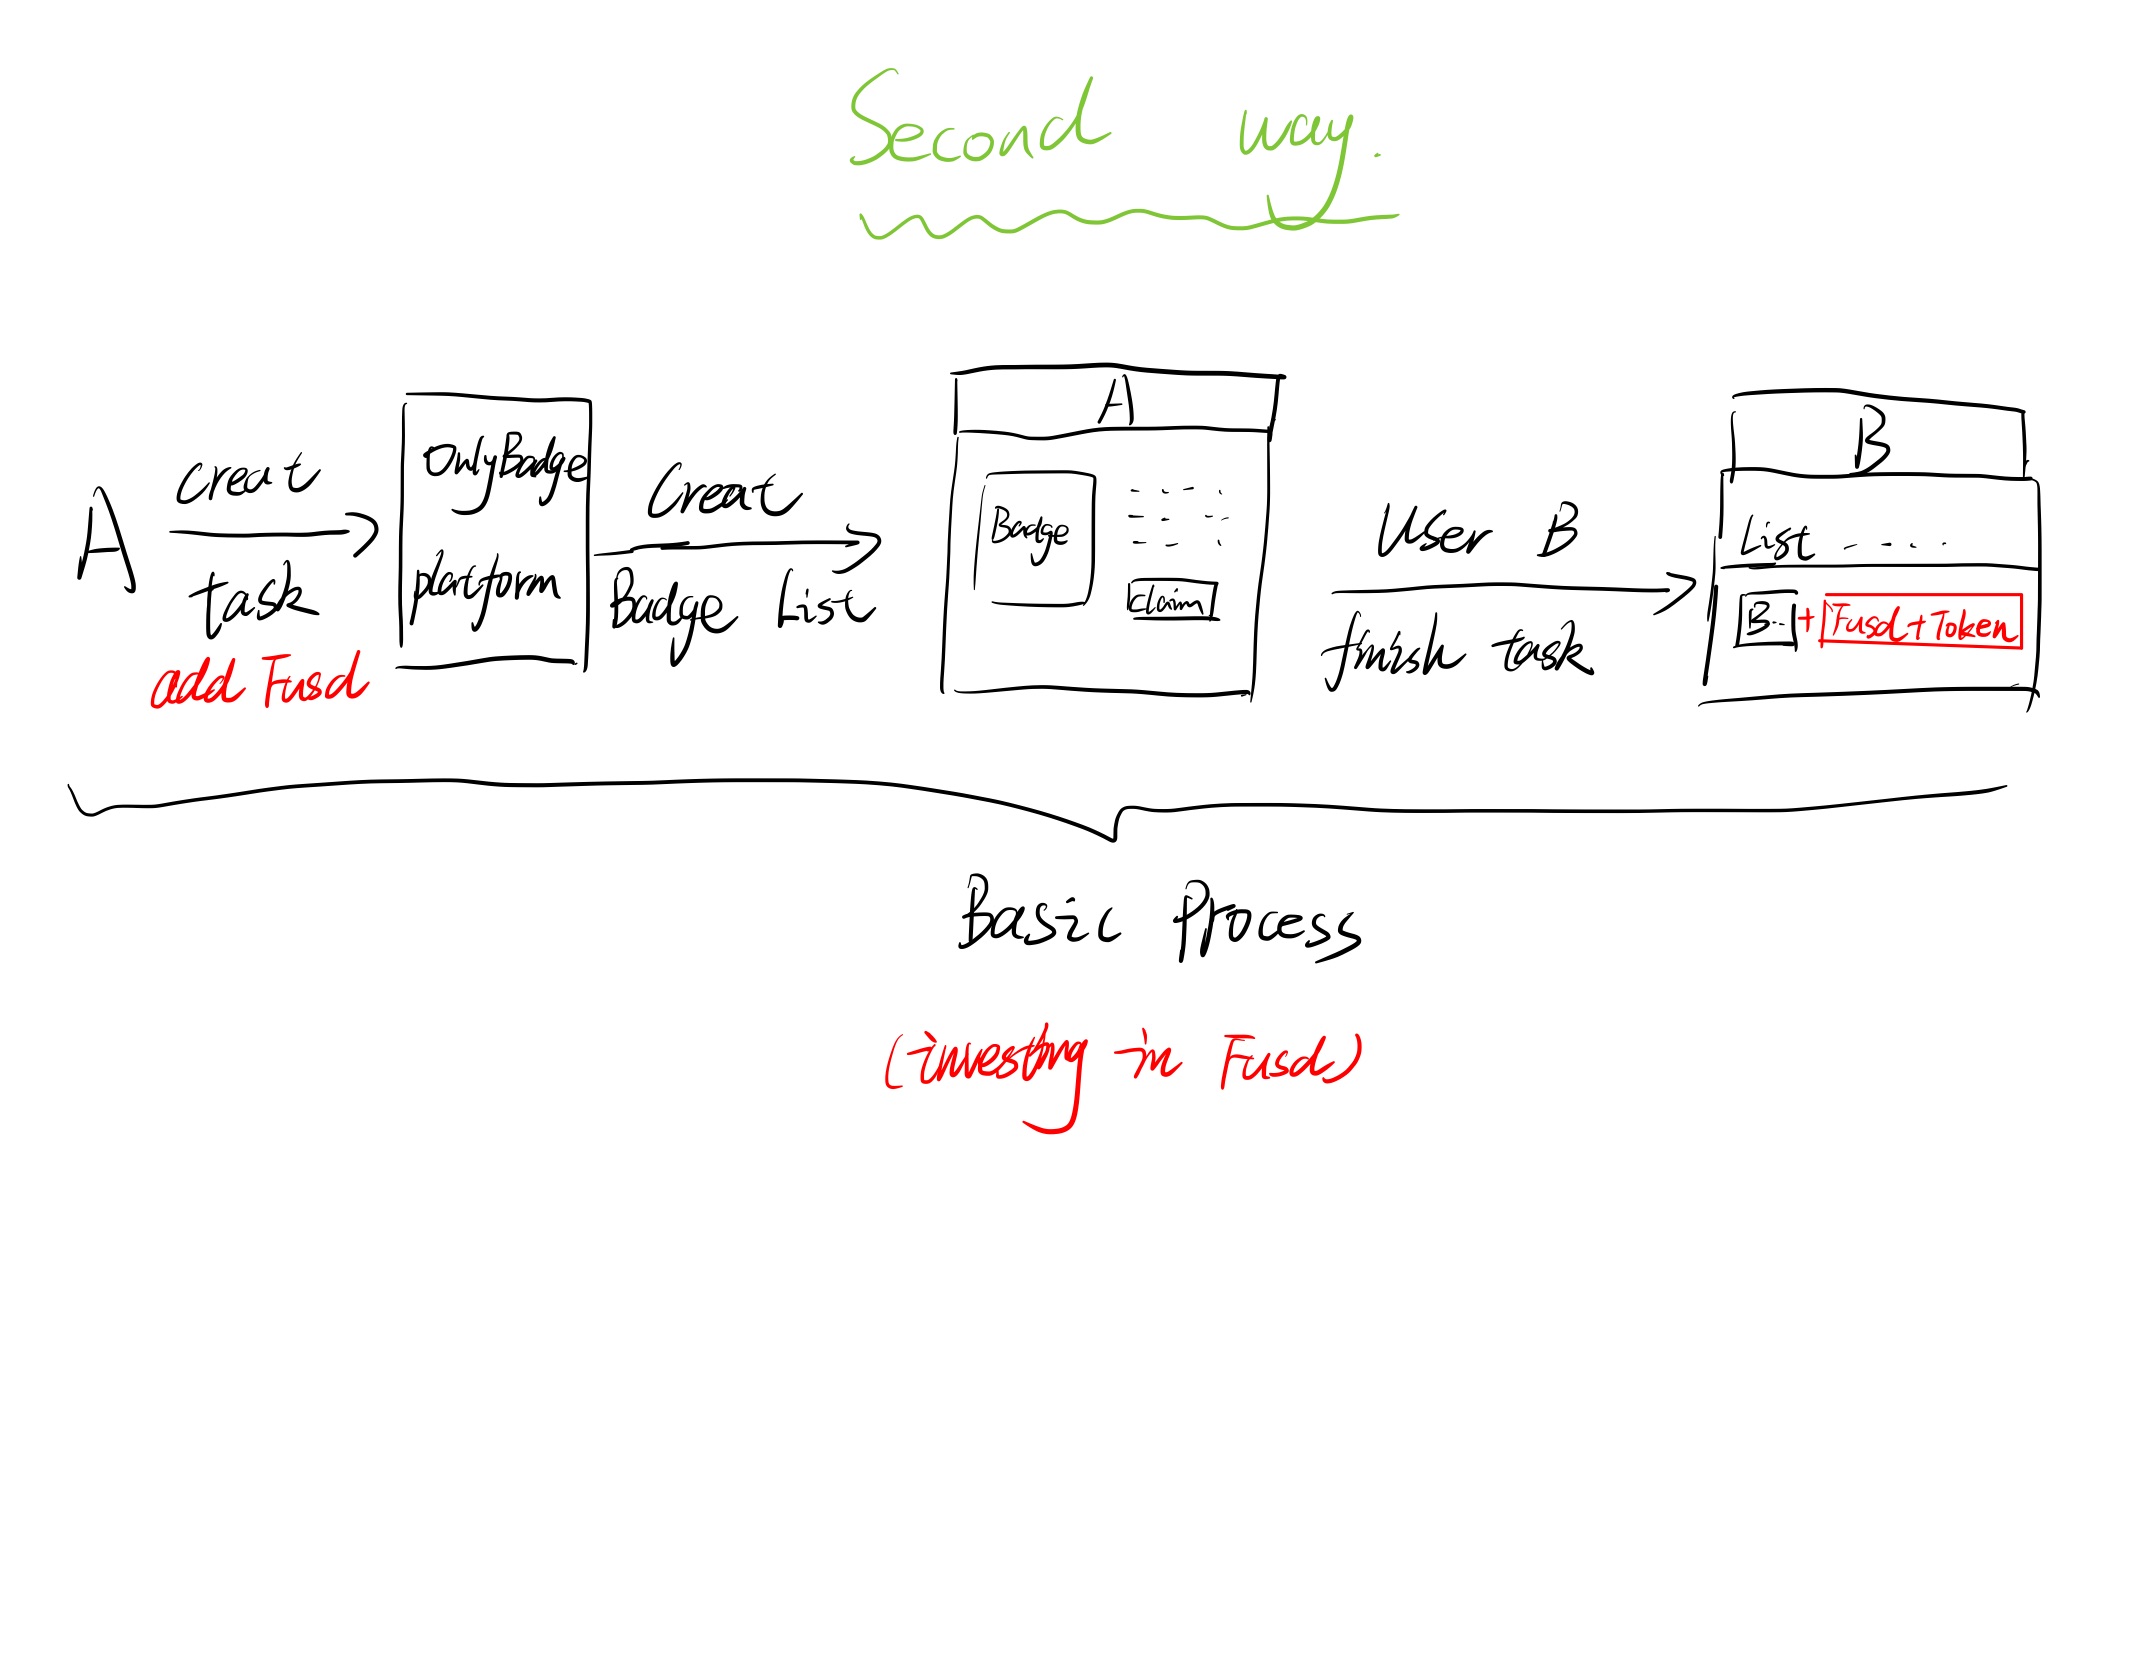 Second way.
A
creat
task
add Fusd
OnlyBadge
platform
Creat
Badge List
A
Badge
Claim
User B
finish task
B
List
B.. + Fusd + Token
Basic Process
(investing in Fusd)